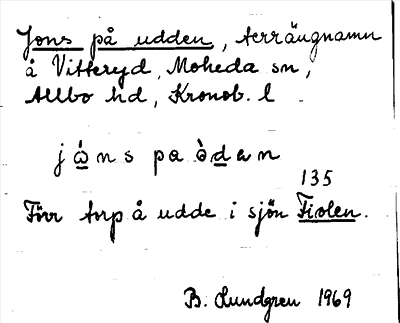 Jons på udden, terrängnamn
å Vitteryd, Moheda sn,
Allbo hd, Kronob. l.
j ώ n s pa ò d a n
135
Förr torp å udde i sjön Fiolen.
B. Lundgren 1969